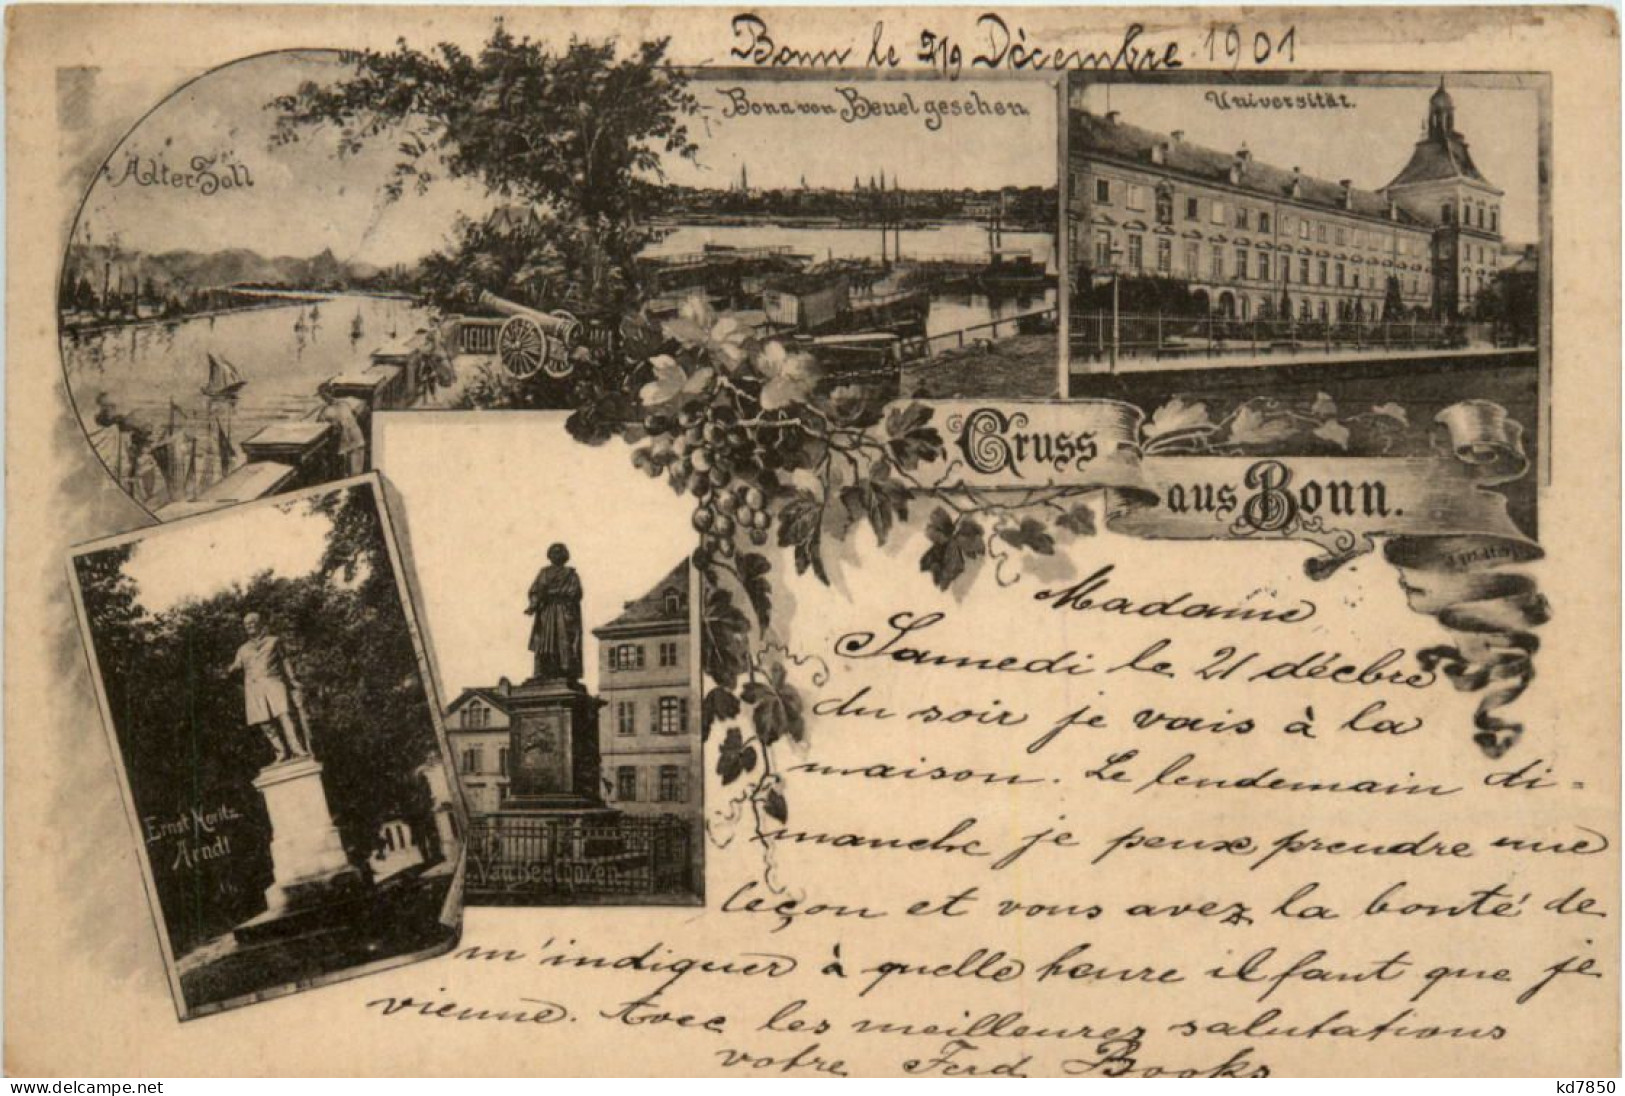 Bonn le 19 Décembre 1901
Alter Zoll
Bonn von Beuel gesehen
Universität.
Gruss
aus Bonn.
Ernst Moritz
Arndt
L. Van Beethoven
Madame
Samedi le 21 décbre
du soir je vais à la
maison. Le lendemain di-
manche je peux prendre une
leçon et vous avez la bonté de
m'indiquer à quelle heure il faut que je
vienne. Avec les meilleures salutations
votre Ferd
www.delcampe.net
kd7850